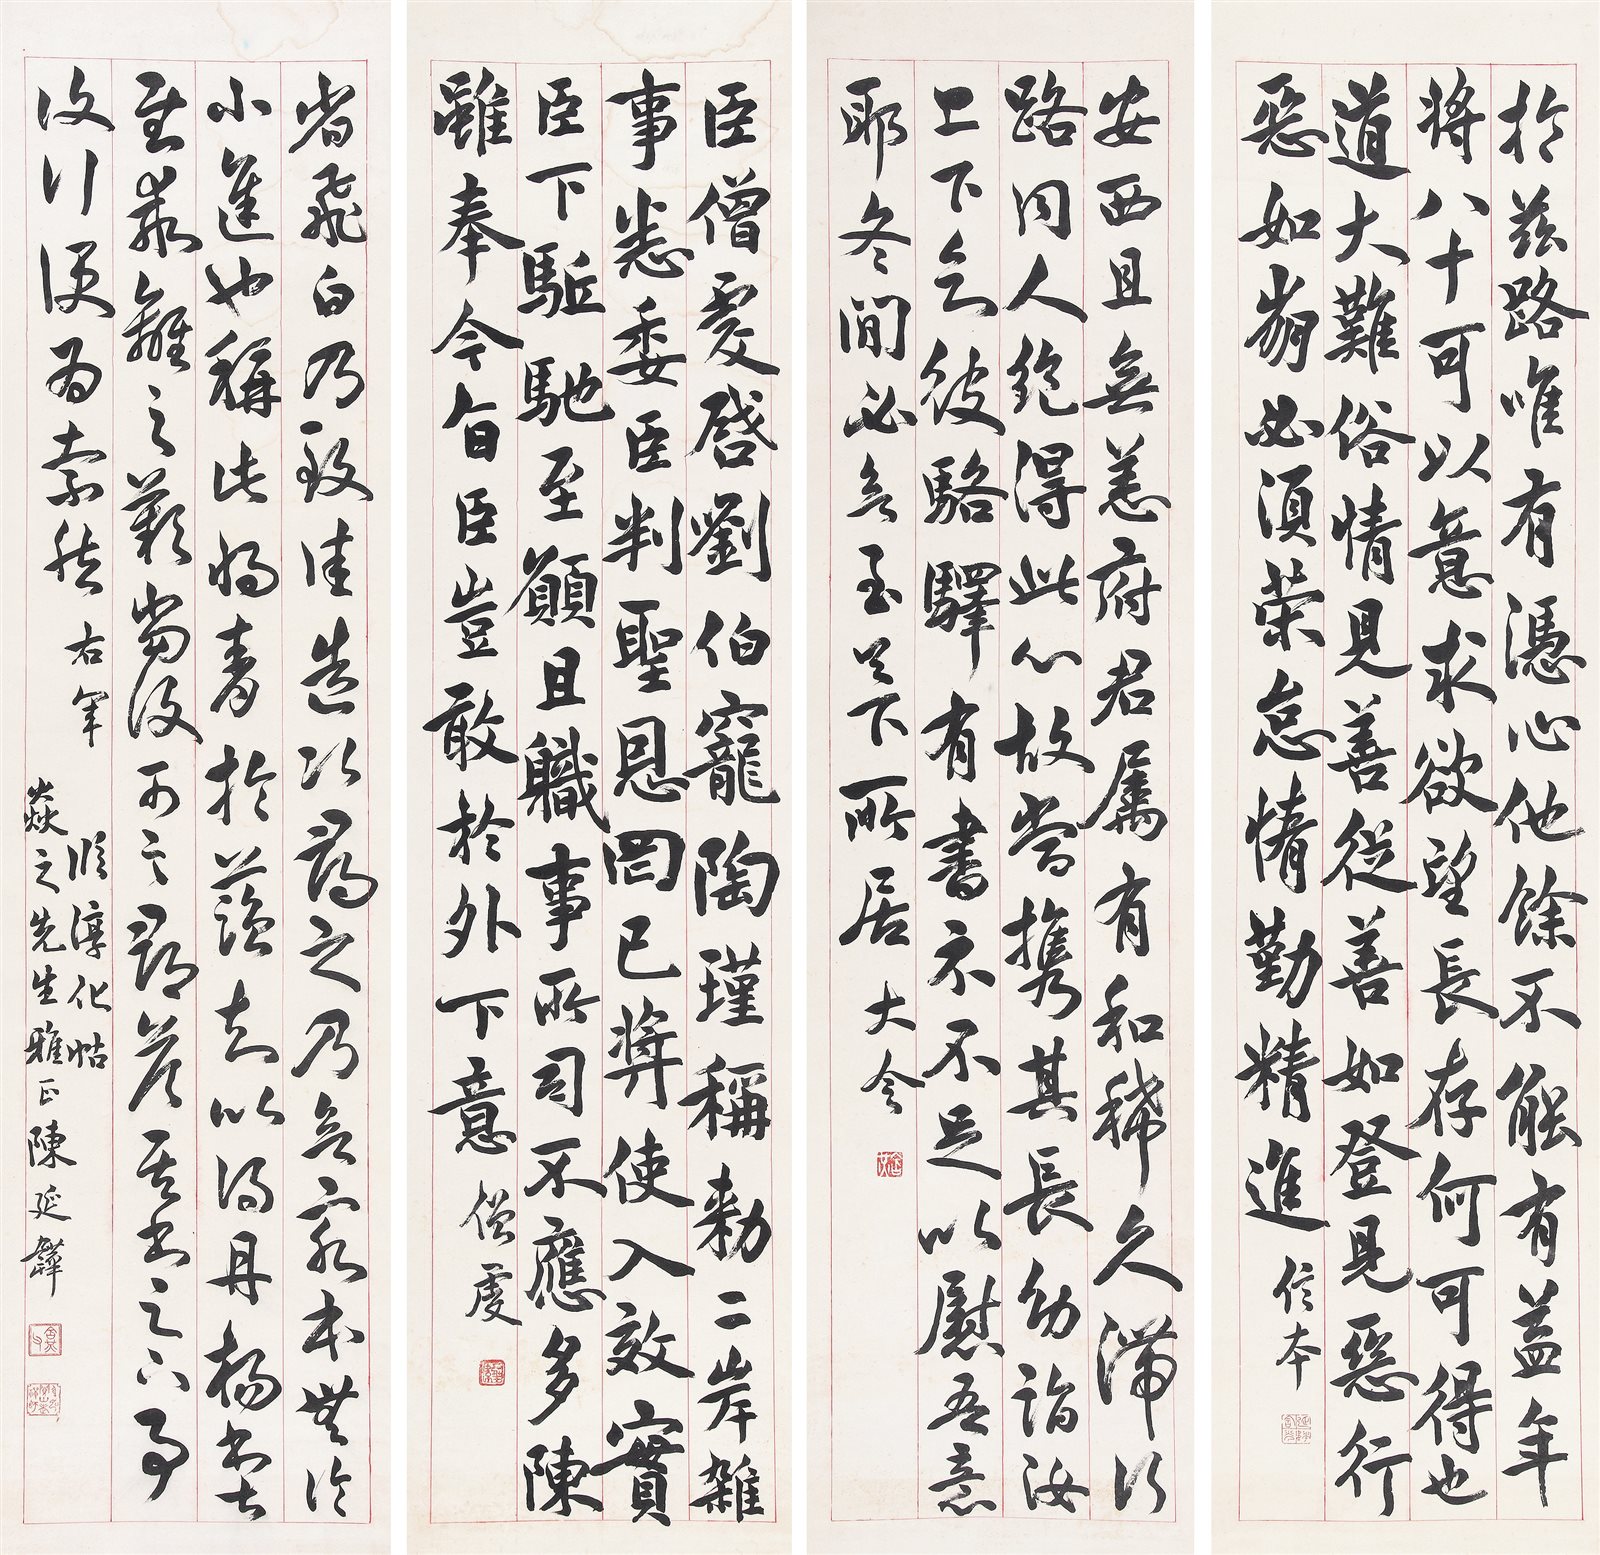 於茲路唯有憑心他餘不能有益年
將八十可以意求欲望長存何可得也
道大難俗情見善從善如登見惡行
惡如崩必須榮怠惰勤精進 信本
安西且無恙府君屬有和稀久滯行
路同人絶得此心故當攜其長幼詣汝
上下之彼駱驛有書不不足以慰吾意
耶冬間必無至足下所居 大令
臣僧虔啓劉伯寵陶瑾稱勅二岸雜
事悉委臣判聖恩罔已奬使入效實
臣下駈馳至願且職事所司不應多陳
雖奉今旨臣豈敢於外下意 僧虔
省飛白乃致佳造次尋之乃無窮本無論
小進也稱此將青於藍去以得丹楊書
離之歎當復可言尋答其書足下事
汝行便為索然 右軍
臨淳化帖
焱之先生雅正陳延韡